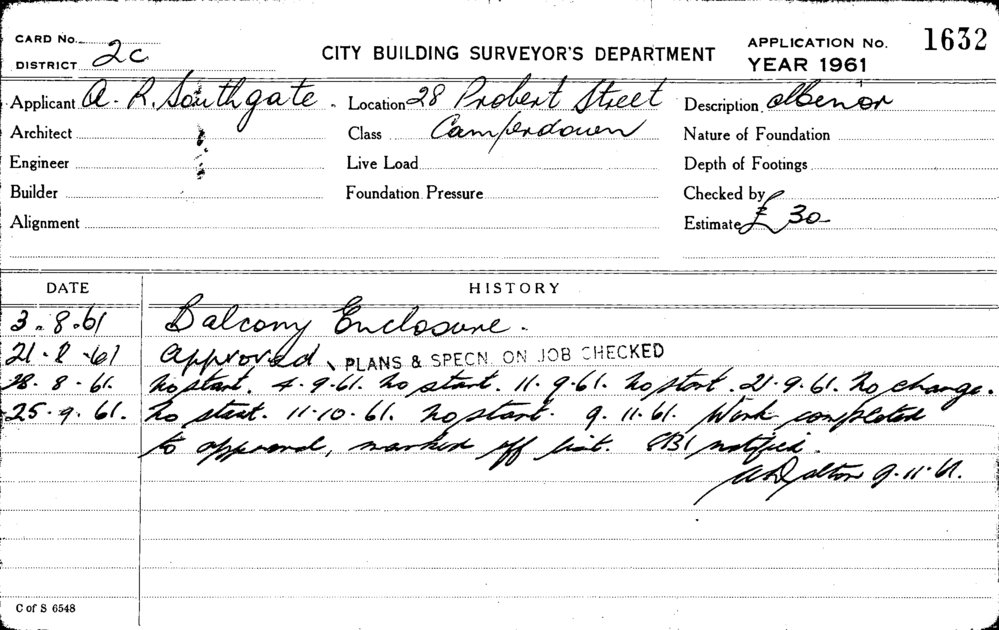 CARD No. 2c
DISTRICT
CITY BUILDING SURVEYOR'S DEPARTMENT
APPLICATION No. 1632
YEAR 1961
Applicant A. R. Southgate. Location 28 Probert Street Description
Architect Class Camperdown Nature of Foundation
Engineer Live Load Depth of Footings
Builder Foundation Pressure Checked by
Alignment Estimate £ 30
DATE HISTORY
3.8.61 Balcony Enclosure.
21.8.61 Approved PLANS & SPECN. ON JOB CHECKED
28.8.61. No start. 4.9.61. No start. 11.9.61. No start. 21.9.61. No change.
25.9.61. No start. 11.10.61. No start. 9.11.61. Work completed
to approval, marked off list. notified.
9.11.61.
C of S 6548